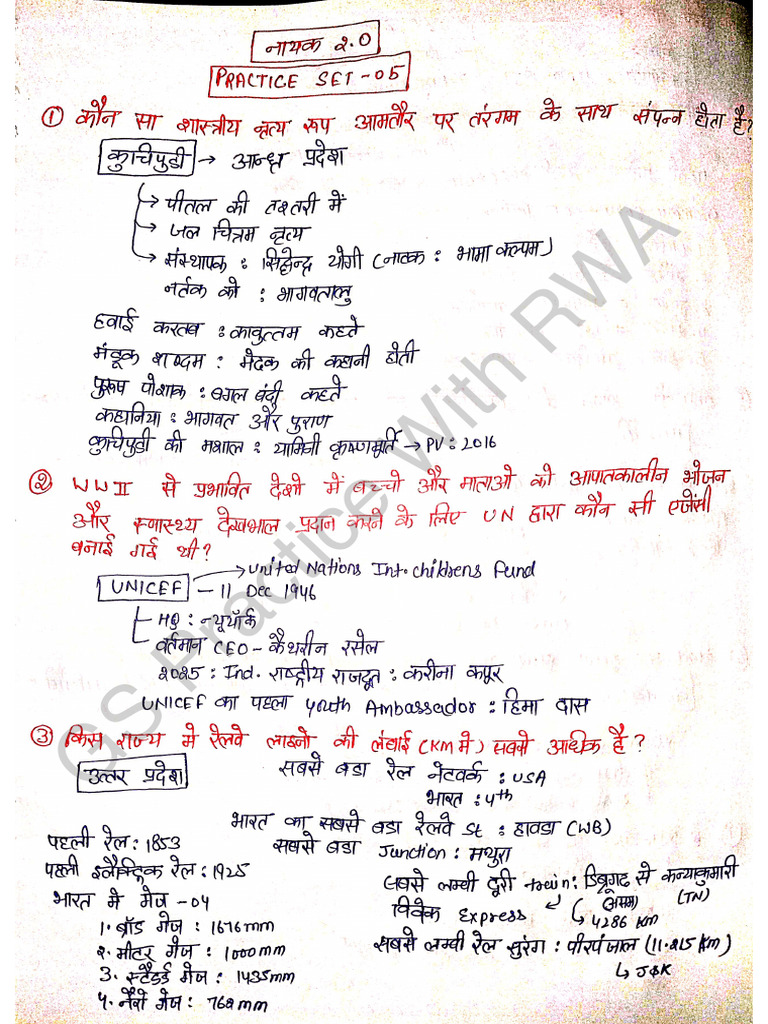 नायक 2.0
PRACTICE SET - 05
① कौन सा शास्त्रीय नृत्य रूप आमतौर पर तरंगम के साथ संपन्न होता है?
कुचिपुडी → आन्ध्र प्रदेश
→ पीतल की तश्तरी में
→ जल चित्रम नृत्य
→ संस्थापक : सिद्देन्द्र योगी (नाटक : भामा कल्पम)
नर्तक को : भागवतालु
हवाई करतब : कावुत्तम कहते
मंडूक शब्दम : मेढक की कहानी होती
पुरुष पोशाक : बगल बंदी कहते
कहानिया : भागवत और पुराण
कुचिपुडी की मशाल : यामिनी कृष्णमूर्ति → PV : 2016
② WW II से प्रभावित देशो में बच्चो और माताओ को आपातकालीन भोजन
और स्वास्थ्य देखभाल प्रदान करने के लिए UN द्वारा कौन सी एजेंसी
बनाई गई थी?
→ United Nations Int. childrens Fund
UNICEF - 11 Dec 1946
HQ : न्यूयॉर्क
वर्तमान CEO - कैथरीन रसेल
2025 : Ind. राष्ट्रीय राजदूत : करीना कपूर
UNICEF का पहला Youth Ambassador : हिमा दास
③ किस राज्य मे रेलवे लाइनो की लंबाई (KM मे) सबसे अधिक है?
उत्तर प्रदेश
सबसे बडा रेल नेटवर्क : USA
भारत : 4th
भारत का सबसे बडा रेलवे St : हावडा (WB)
सबसे बडा Junction : मथुरा
पहली रेल : 1853
पहली इलैक्ट्रिक रेल : 1925
भारत मे गेज - 04
1. बॉड गेज : 1676 mm
2. मीटर गेज : 1000 mm
3. स्टैंडर्ड गेज : 1435 mm
4. नैरो गेज : 762 mm
सबसे लम्बी दूरी train : डिब्रूगढ से कन्याकुमारी
(असम) (TN)
विवेक Express ↙ ↳ 4286 Km
सबसे लम्बी रेल सुरंग : पीरपंजाल (11.215 Km)
↳ J&K
GS Practice With RWA